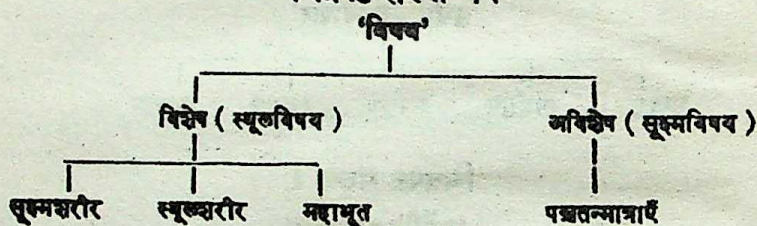 ‘विषय’
विशेष ( स्थूलविषय ) अविशेष ( सूक्ष्मविषय )
सूक्ष्मशरीर स्थूलशरीर महाभूत पञ्चतन्मात्राएँ